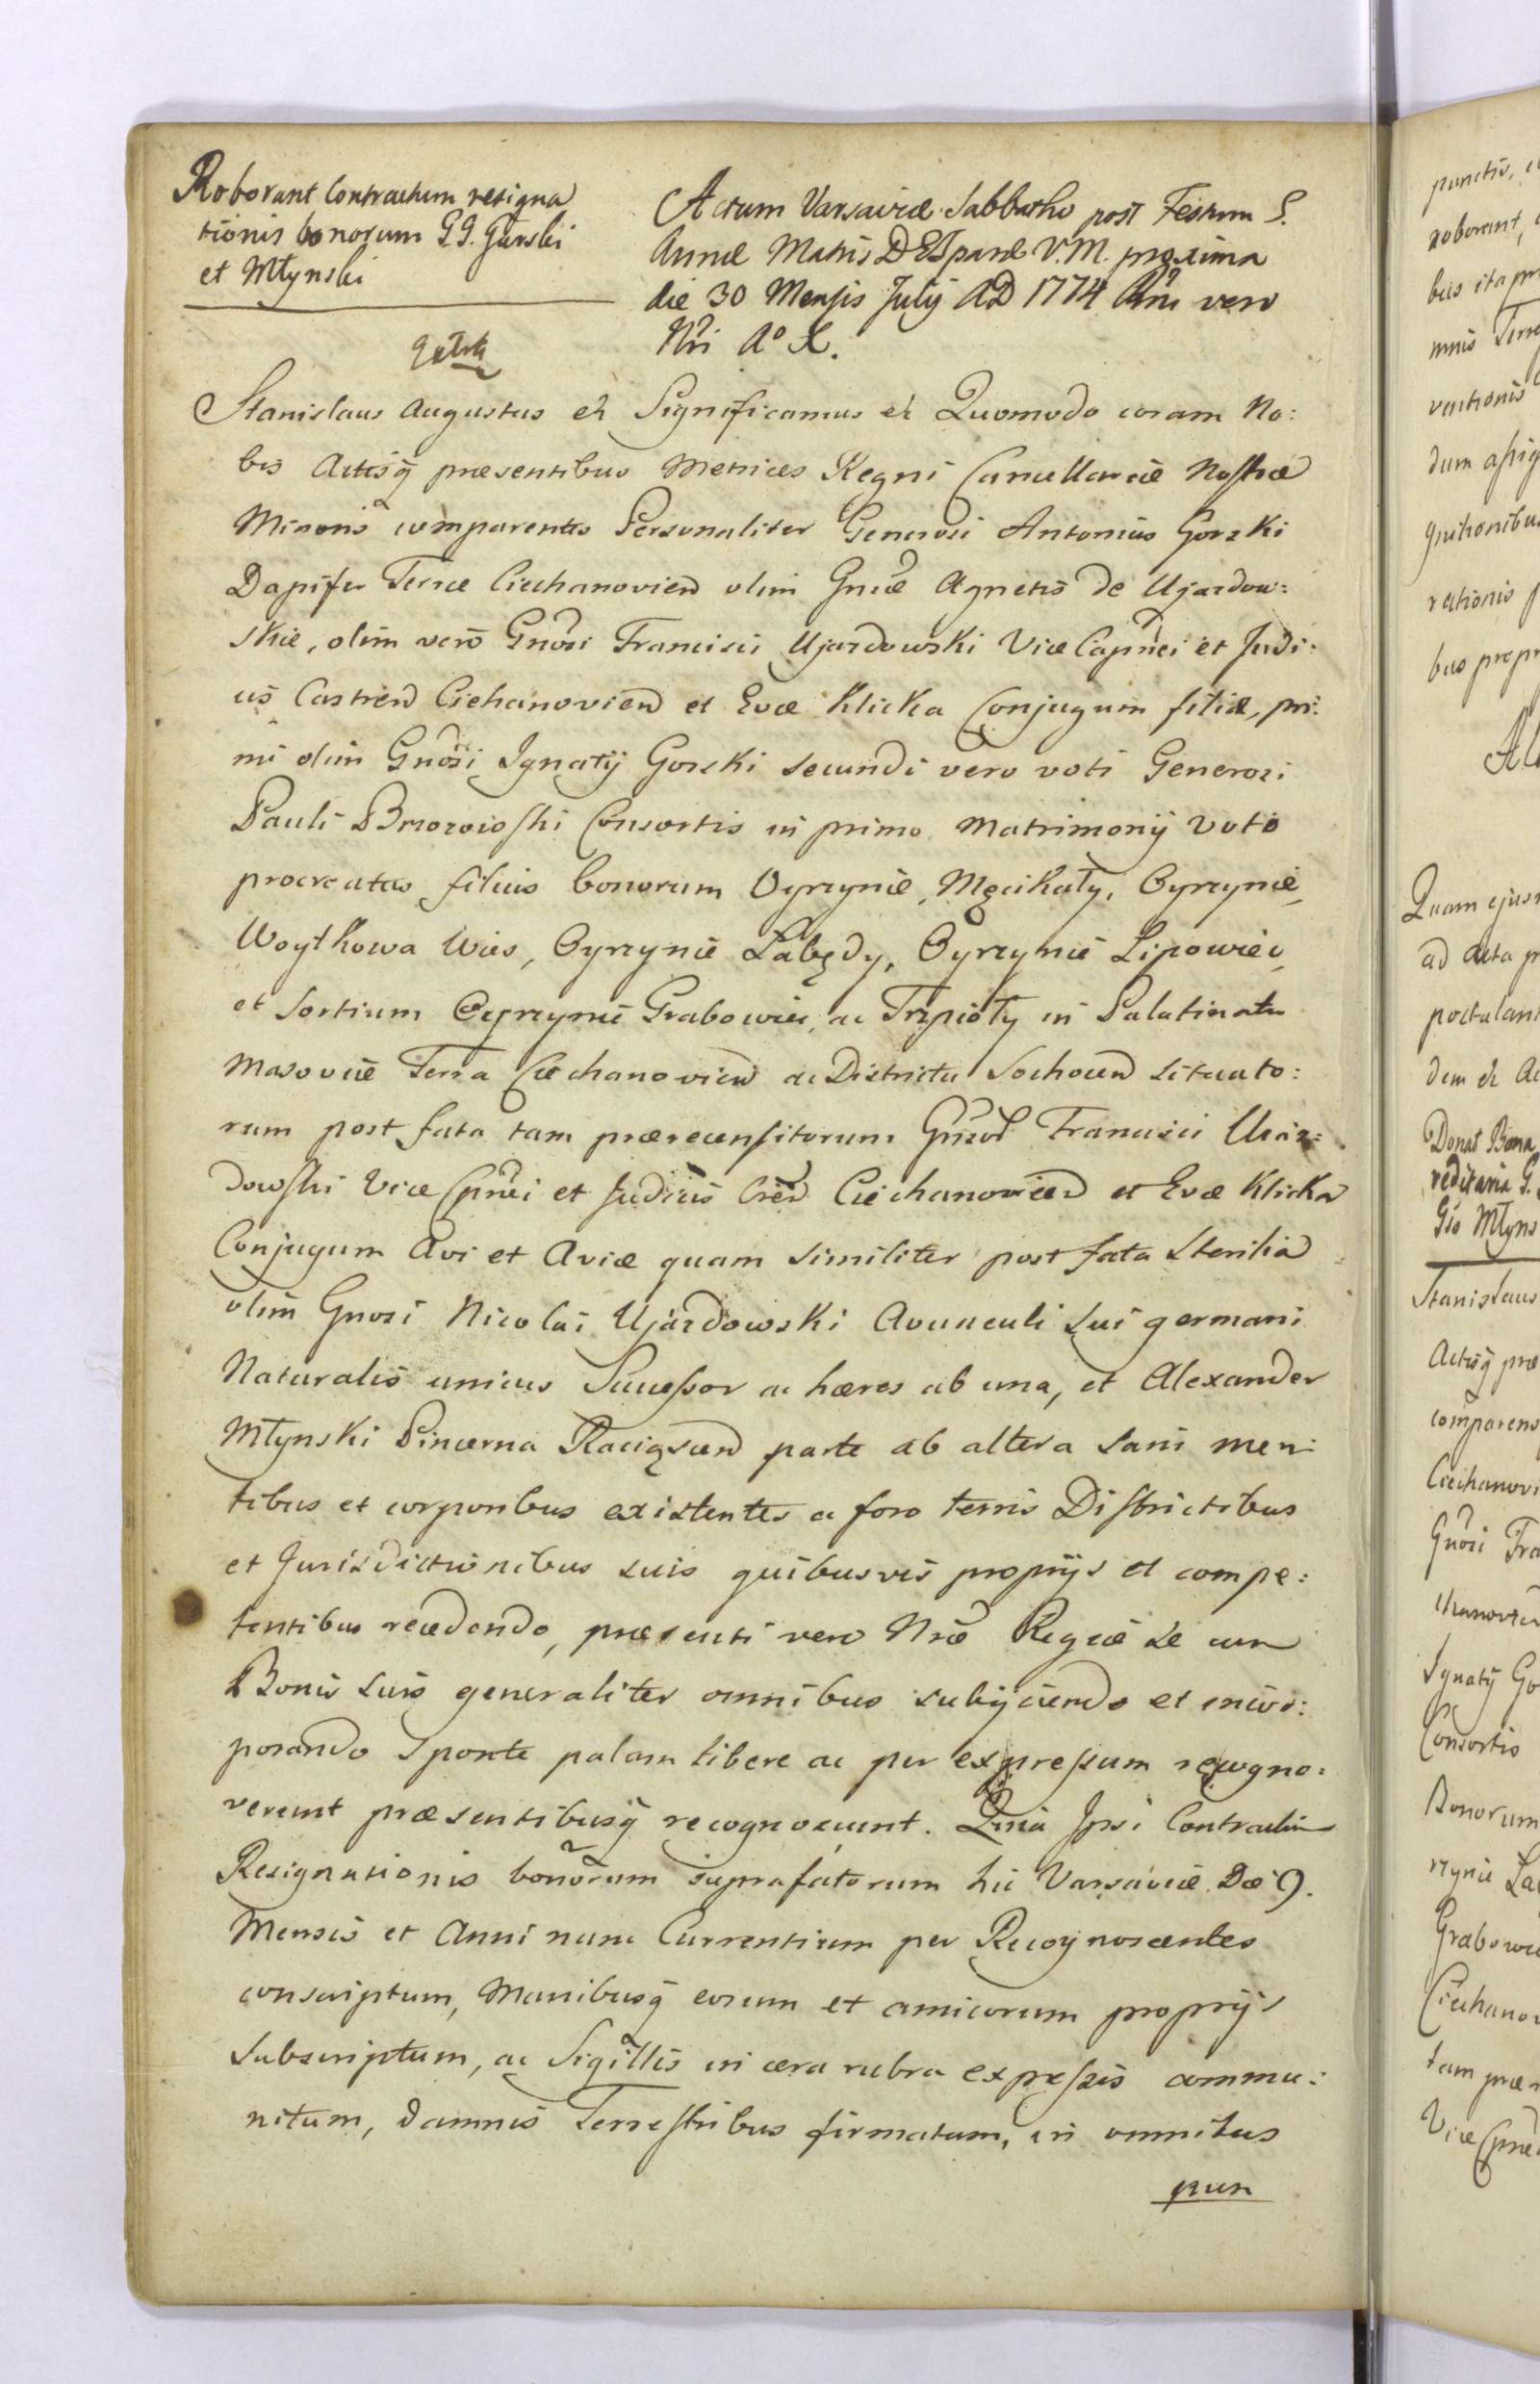 Roborant Contractum resigna
tionis bonorum G.G. Gurski
et Młynski
Actum Varsaviæ Sabbatho post Festum S.
Annæ Matris DEIparæ V.M. proxima
die 30 Mensis July AD 1774 Rñi vero
Nři A° X.
Stanislaus Augustus et Significamus et Quomodo coram No:
bis Actisq̃ præsentibus Metrices Regni Cancellariæ Nostræ
Minoris comparentes Personaliter Generosi Antonius Gorzki
Dapifer Terræ Ciechanovien olim Gnræ Agnetis de Ujazdow:
skie, olim verò Gnosi Francisci Ujazdowski Vice Capñei et Judi:
cis Castren Ciehanovien et Evæ Klicka Conjugum filiæ, pri:
mi olim Gnosi Ignatij Gorski secundi vero voti Generosi
Pauli Consortis in primo Matrimonij voto
procreatus filius bonorum Oyrzynie, Męcikaty, Oyrzynie,
Woytkowa Wies, Oyrzynie Łabędy, Oyrzynie Lipowiec,
et Sortium Oyrzynie Grabowiec, ac Trzpioły in Palatinatu
Masoviæ Terra Ciechanovien ac Districtu Sochocen situato:
rum post fata tam præreensitorum Gnrod Francisci Uiaz:
dowski Vice Cpñei et Judicis Crěn Ciechanovien et Evæ Klicka
Conjugum Avi et Aviæ quam similiter post fata sterilia
olim Gnosi Nicolai Ujazdowski Avunculi sui germani
Naturalis unicus Sucessor ac hæres ab una, et Alexander
Młynski Pincerna Raciązcen parte ab altera sani men:
tibus et corporibus existentes a foro terris Districtibus
et Jurisdictionibus suis quibusvis proprijs et compe:
tentibus recedendo, præsenti vero Nrõ Regiæ se cum
Bonis suis generaliter omnibus subijciendo et incor:
porando sponte palam libere ac per expressum recogno:
verunt præsentibusq̃ recognoscunt. Quia Ipsi Contractum
Resignationis bonorum suprafatorum hic Varsaviæ Die 9.
Mensis et Anni nunc Currentium per Recognoscentes
conscriptum, Manibusq̃ eorum et amicorum proprijs
subscriptum, ac Sigillis in cera rubra expressis commu:
nitum, damnis Terrestribus firmatum, in omnibus
pun
punctis,
roborant,
bus ita
minis
dum assig
quitionibus
rationis
Al
Quam ejus
ad Acta
postulant
dem et
Donat Bona
reditaria G.
Gio Młyns
Stanislaus
Actisq̃ præ
comparens
Ciechanovi
Gnosi Fra
Ignatij Go
Consortis
Bonorum
rzynie Ła
Grabowi
Ciechano
tam præ
Vice Cpñe